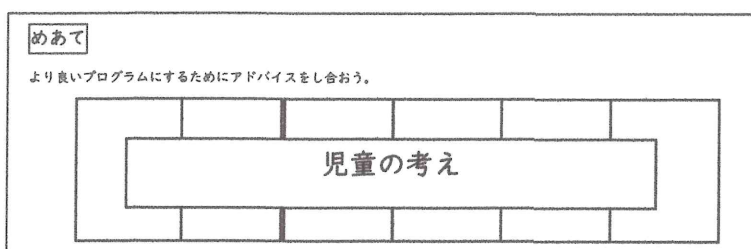 めあて
より良いプログラムにするためにアドバイスをし合おう。
児童の考え